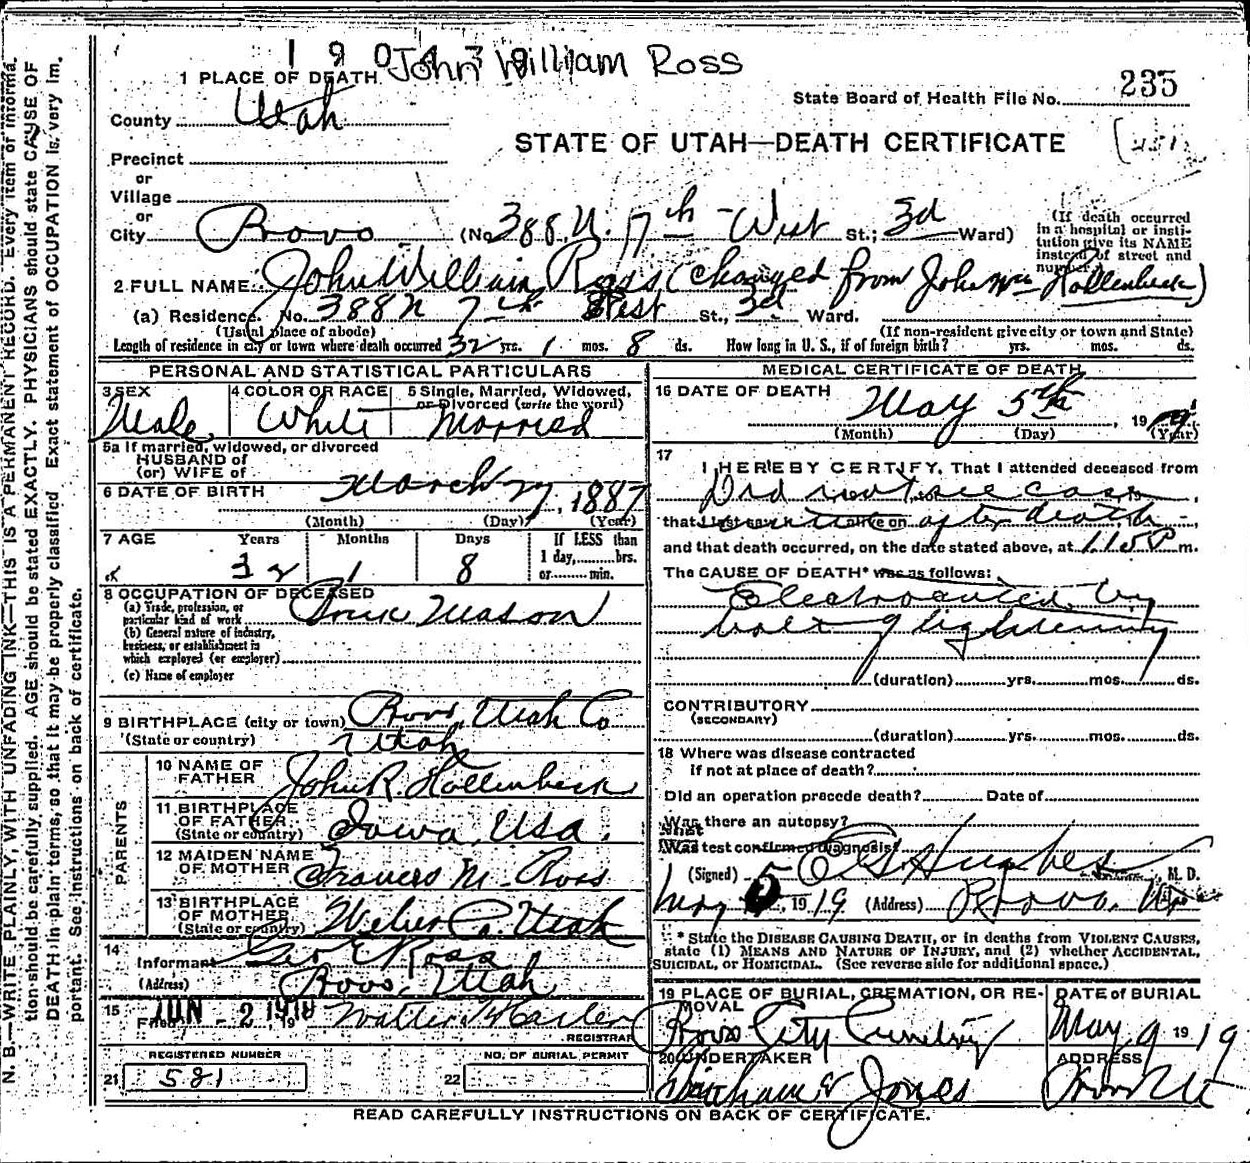 1 9 0 4 3 9
John William Ross
1 PLACE OF DEATH
County Utah
State Board of Health File No. 235
STATE OF UTAH—DEATH CERTIFICATE
Precinct
or
Village
or
City Provo (No 388 N. 7th - West St.; 3d Ward)
(If death occurred
in a hospital or insti-
tution give its NAME
instead of street and
number.)
2 FULL NAME John William Ross (changed from John Wm Hollenbeck)
(a) Residence. No. 388 N 7th West St., 3d Ward.
(Usual place of abode) (If non-resident give city or town and State)
Length of residence in city or town where death occurred 32 yrs. 1 mos. 8 ds. How long in U. S., if of foreign birth? yrs. mos. ds.
PERSONAL AND STATISTICAL PARTICULARS
3 SEX Male
4 COLOR OR RACE White
5 Single, Married, Widowed,
or Divorced (write the word)
Married
5a If married, widowed, or divorced
HUSBAND of
(or) WIFE of
6 DATE OF BIRTH March 27, 1887
(Month) (Day) (Year)
7 AGE Years Months Days If LESS than
1 day, brs.
or min.
32 1 8
8 OCCUPATION OF DECEASED
(a) Trade, profession, or
particular kind of work Brick Mason
(b) General nature of industry,
business, or establishment in
which employed (or employer)
(c) Name of employer
9 BIRTHPLACE (city or town) Provo, Utah Co
(State or country) Utah
PARENTS
10 NAME OF
FATHER John R. Hollenbeck
11 BIRTHPLACE
OF FATHER
(State or country) Iowa, Usa.
12 MAIDEN NAME
OF MOTHER Frances M. Ross
13 BIRTHPLACE
OF MOTHER
(State or country) Weber Co. Utah
14
Informant Geo E Ross
(Address) Provo, Utah
15
Filed JUN - 2 1919 Walter
REGISTRAR
REGISTERED NUMBER NO. OF BURIAL PERMIT
21 581 22
MEDICAL CERTIFICATE OF DEATH
16 DATE OF DEATH May 5th, 1919
(Month) (Day) (Year)
17
I HEREBY CERTIFY, That I attended deceased from
Did not see case
that I last saw until alive on after death,
and that death occurred, on the date stated above, at 1.15 P m.
The CAUSE OF DEATH* was as follows:
Electrocuted by
bolt of lightening
(duration) yrs. mos. ds.
CONTRIBUTORY
(SECONDARY)
(duration) yrs. mos. ds.
18 Where was disease contracted
if not at place of death?
Did an operation precede death? Date of
Was there an autopsy?
What test confirmed diagnosis?
(Signed) Hughes, M. D.
May 5, 1919 (Address) Provo,
* State the DISEASE CAUSING DEATH, or in deaths from VIOLENT CAUSES,
state (1) MEANS AND NATURE OF INJURY, and (2) whether ACCIDENTAL,
SUICIDAL, or HOMICIDAL. (See reverse side for additional space.)
19 PLACE OF BURIAL, CREMATION, OR RE-
MOVAL
Provo City
DATE of BURIAL
May 9 1919
20 UNDERTAKER
& Jones
ADDRESS
Provo Ut
READ CAREFULLY INSTRUCTIONS ON BACK OF CERTIFICATE.
N. B.—WRITE PLAINLY, WITH UNFADING INK—THIS IS A PERMANENT RECORD. Every item of informa-
tion should be carefully supplied. AGE should be stated EXACTLY. PHYSICIANS should state CAUSE OF
DEATH in plain terms, so that it may be properly classified. Exact statement of OCCUPATION is very im-
portant. See instructions on back of certificate.